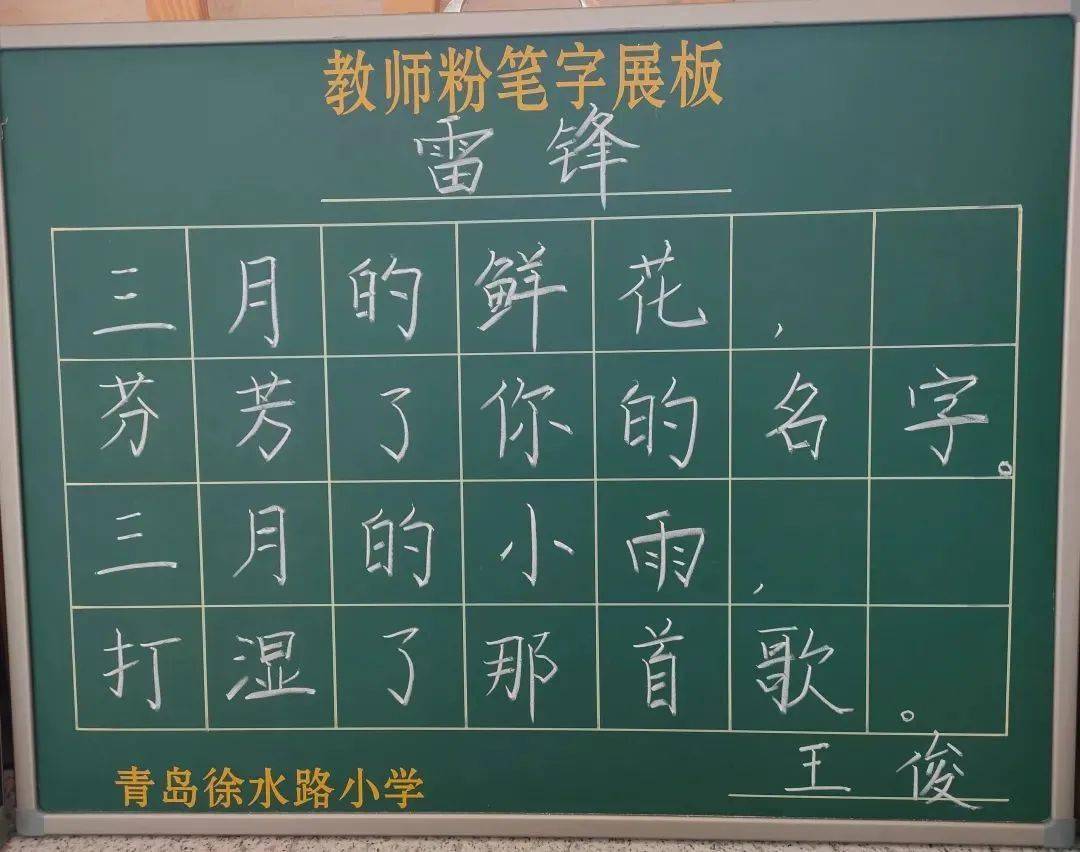 教师粉笔字展板
雷锋
三月的鲜花,
芬芳了你的名字。
三月的小雨,
打湿了那首歌。
青岛徐水路小学
王俊